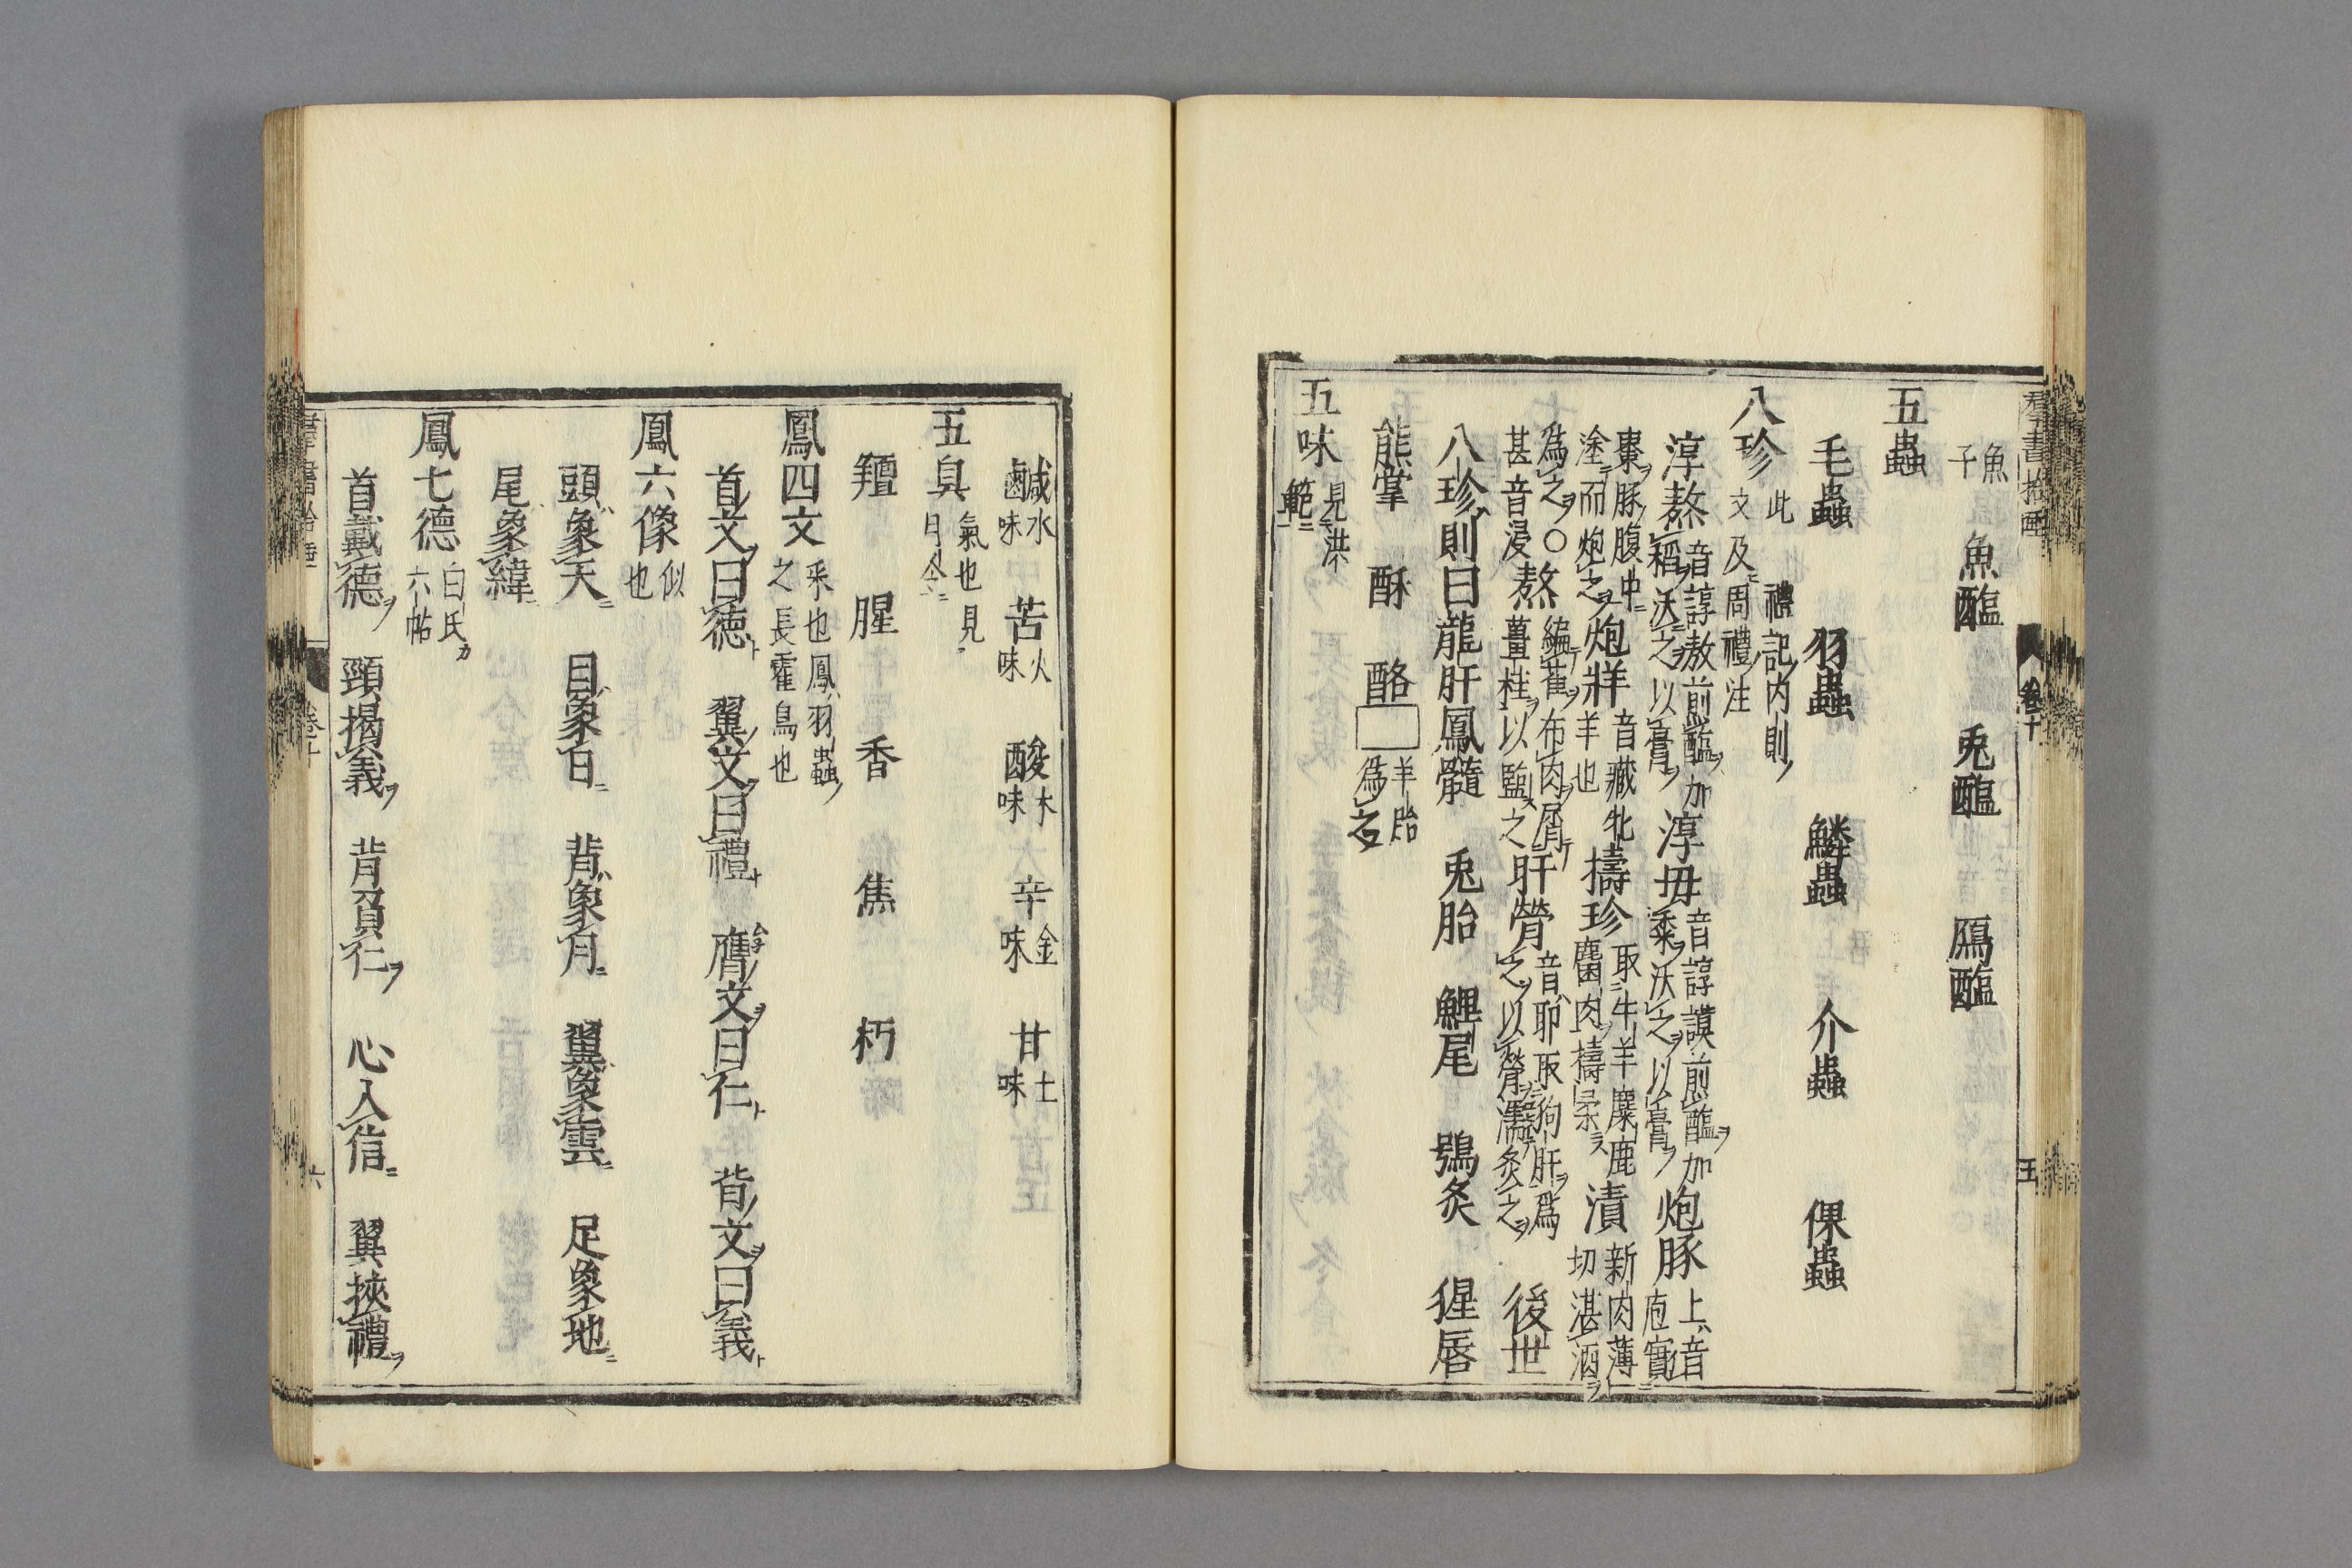 魚子 魚醢 兎醢 鴈醢
五蟲
毛蟲 羽蟲 鱗蟲 介蟲 倮蟲
八珍 此禮記内則文及周禮注
淳熬 音諄敖煎醢加稻沃之以膏 淳毋 音諄謨煎醢加黍沃之以膏 炮豚 上音庖實
棗豚腹中塗而炮之 炮牂 音臧牝羊也 擣珍 取牛羊麋鹿麕肉擣柔 漬 新肉薄切湛酒
為之〇甚音浸 熬 編萑布肉屑薑桂以鹽之 肝膋 音聊取狗肝爲之以膋濡炙之 後世
八珍則曰龍肝鳳髓 兎胎 鯉尾 鴞炙 猩唇
熊掌 酥酪 羊脂為之
五味 見洪範
群書拾唾 卷十 五
鹹水味 苦火味 酸木味 辛金味 甘土味
五臭 氣也見月令
羶 腥 香 焦 朽
鳳四文 采也鳳羽蟲之長靈鳥也
首文曰德 翼文曰禮 膺文曰仁 背文曰義
鳳六像 似也
頭象天 目象日 背象月 翼象雲 足象地
尾象緯
鳳七德 白氏六帖
首戴德 頸揭義 背負仁 心入信 翼挾禮
卷十 六